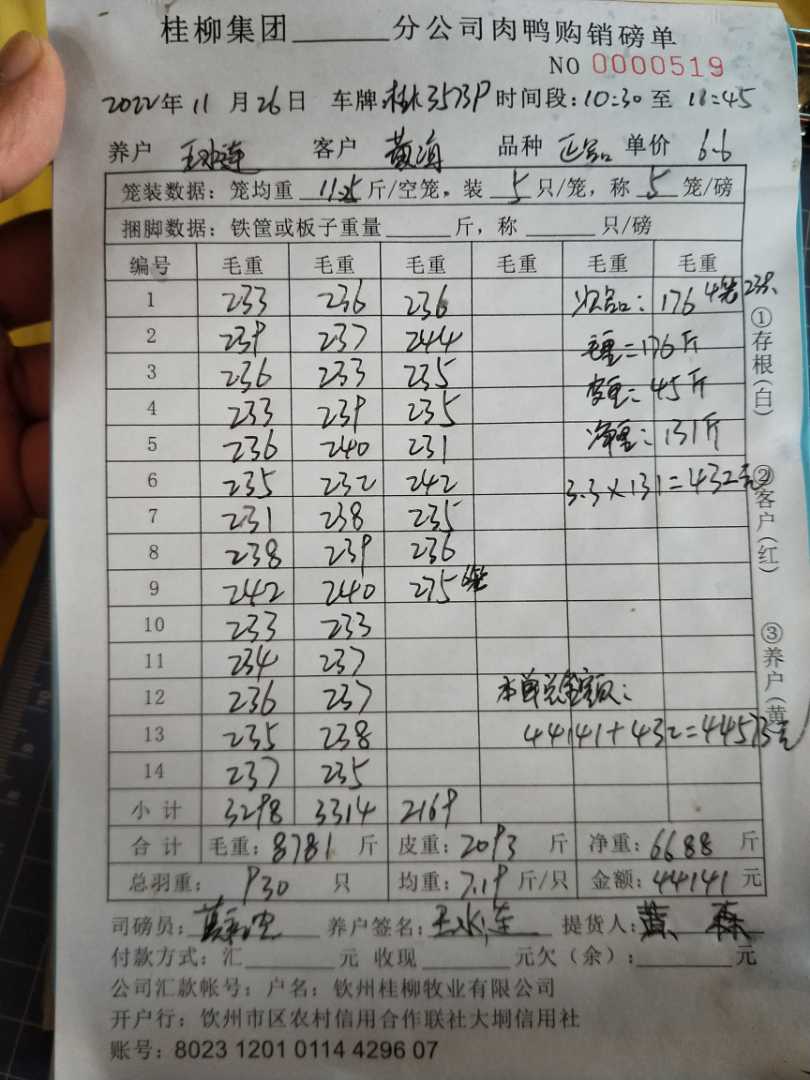 桂柳集团______分公司肉鸭购销磅单
NO 0000519
2022年 11月26日 车牌:桂 3573P 时间段:10:30至 11:45
养户 王水连 客户 黄 品种 正品 单价 6.6
笼装数据:笼均重 11.25斤/空笼,装 5 只/笼,称 5 笼/磅
捆脚数据:铁筐或板子重量______斤,称______只/磅
编号 毛重 毛重 毛重 毛重 毛重 毛重
1 233 236 236 次品: 176 4笼 23只
2 239 237 244 毛重=176斤
3 236 233 235 皮重:45斤
4 233 239 235
5 236 240 231 净重:131斤
6 235 232 242 3.3×131=432元
7 231 238 235
8 238 239 236
9 242 240 275 6笼
10 233 233
11 234 237
12 236 237 本单总金额:
13 235 238 44141+432=44573元
14 237 235
小计 3298 3314 2169
合计 毛重:8781 斤 皮重:2093 斤 净重:6688 斤
总羽重: 930 只 均重:7.19斤/只 金额:44141元
司磅员: 养户签名:王水连 提货人:黄 森
付款方式:汇______元 收现______元欠(余):______元
公司汇款帐号:户名:钦州桂柳牧业有限公司
开户行:钦州市区农村信用合作联社大垌信用社
账号:8023 1201 0114 4296 07
①存根(白)
②客户(红)
③养户(黄